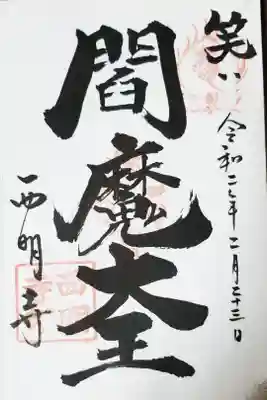 笑い
令和二年二月二十三日
閻魔大王
西明寺
西明寺